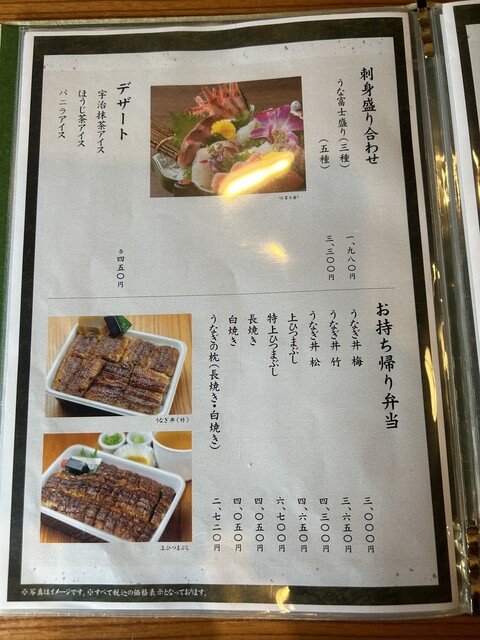 刺身盛り合わせ
うな富士盛り(三種) 一、九八〇円
(五種) 三、三〇〇円
デザート
宇治抹茶アイス
ほうじ茶アイス
バニラアイス
各四五〇円
お持ち帰り弁当
うなぎ丼 梅 三、〇〇〇円
うなぎ丼 竹 三、六五〇円
うなぎ丼 松 四、三〇〇円
上ひつまぶし 四、六五〇円
特上ひつまぶし 六、七〇〇円
長焼き 四、〇五〇円
白焼き 四、〇五〇円
うなぎの枕(長焼き・白焼き) 二、七二〇円
うなぎ丼(竹)
上ひつまぶし
※写真はイメージです。※すべて税込の価格表示となっております。